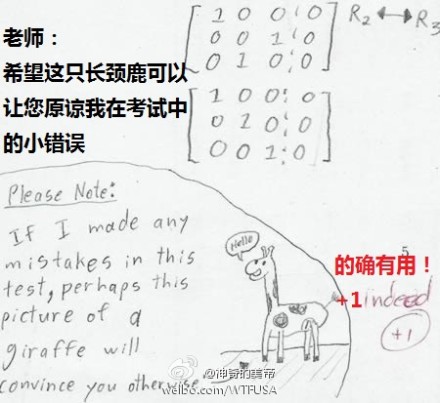 老师：
希望这只长颈鹿可以
让您原谅我在考试中
的小错误
1 0 0 ¦ 0
0 0 1 ¦ 0
0 1 0 ¦ 0
R₂ ↔ R₃
1 0 0 ¦ 0
0 1 0 ¦ 0
0 0 1 ¦ 0
Please Note:
If I made any
mistakes in this
test, perhaps this
picture of a
giraffe will
convince you otherwise.
Hello
5
的确有用！
+1 indeed
+1
@神奇的美帝
weibo.com/WTFUSA